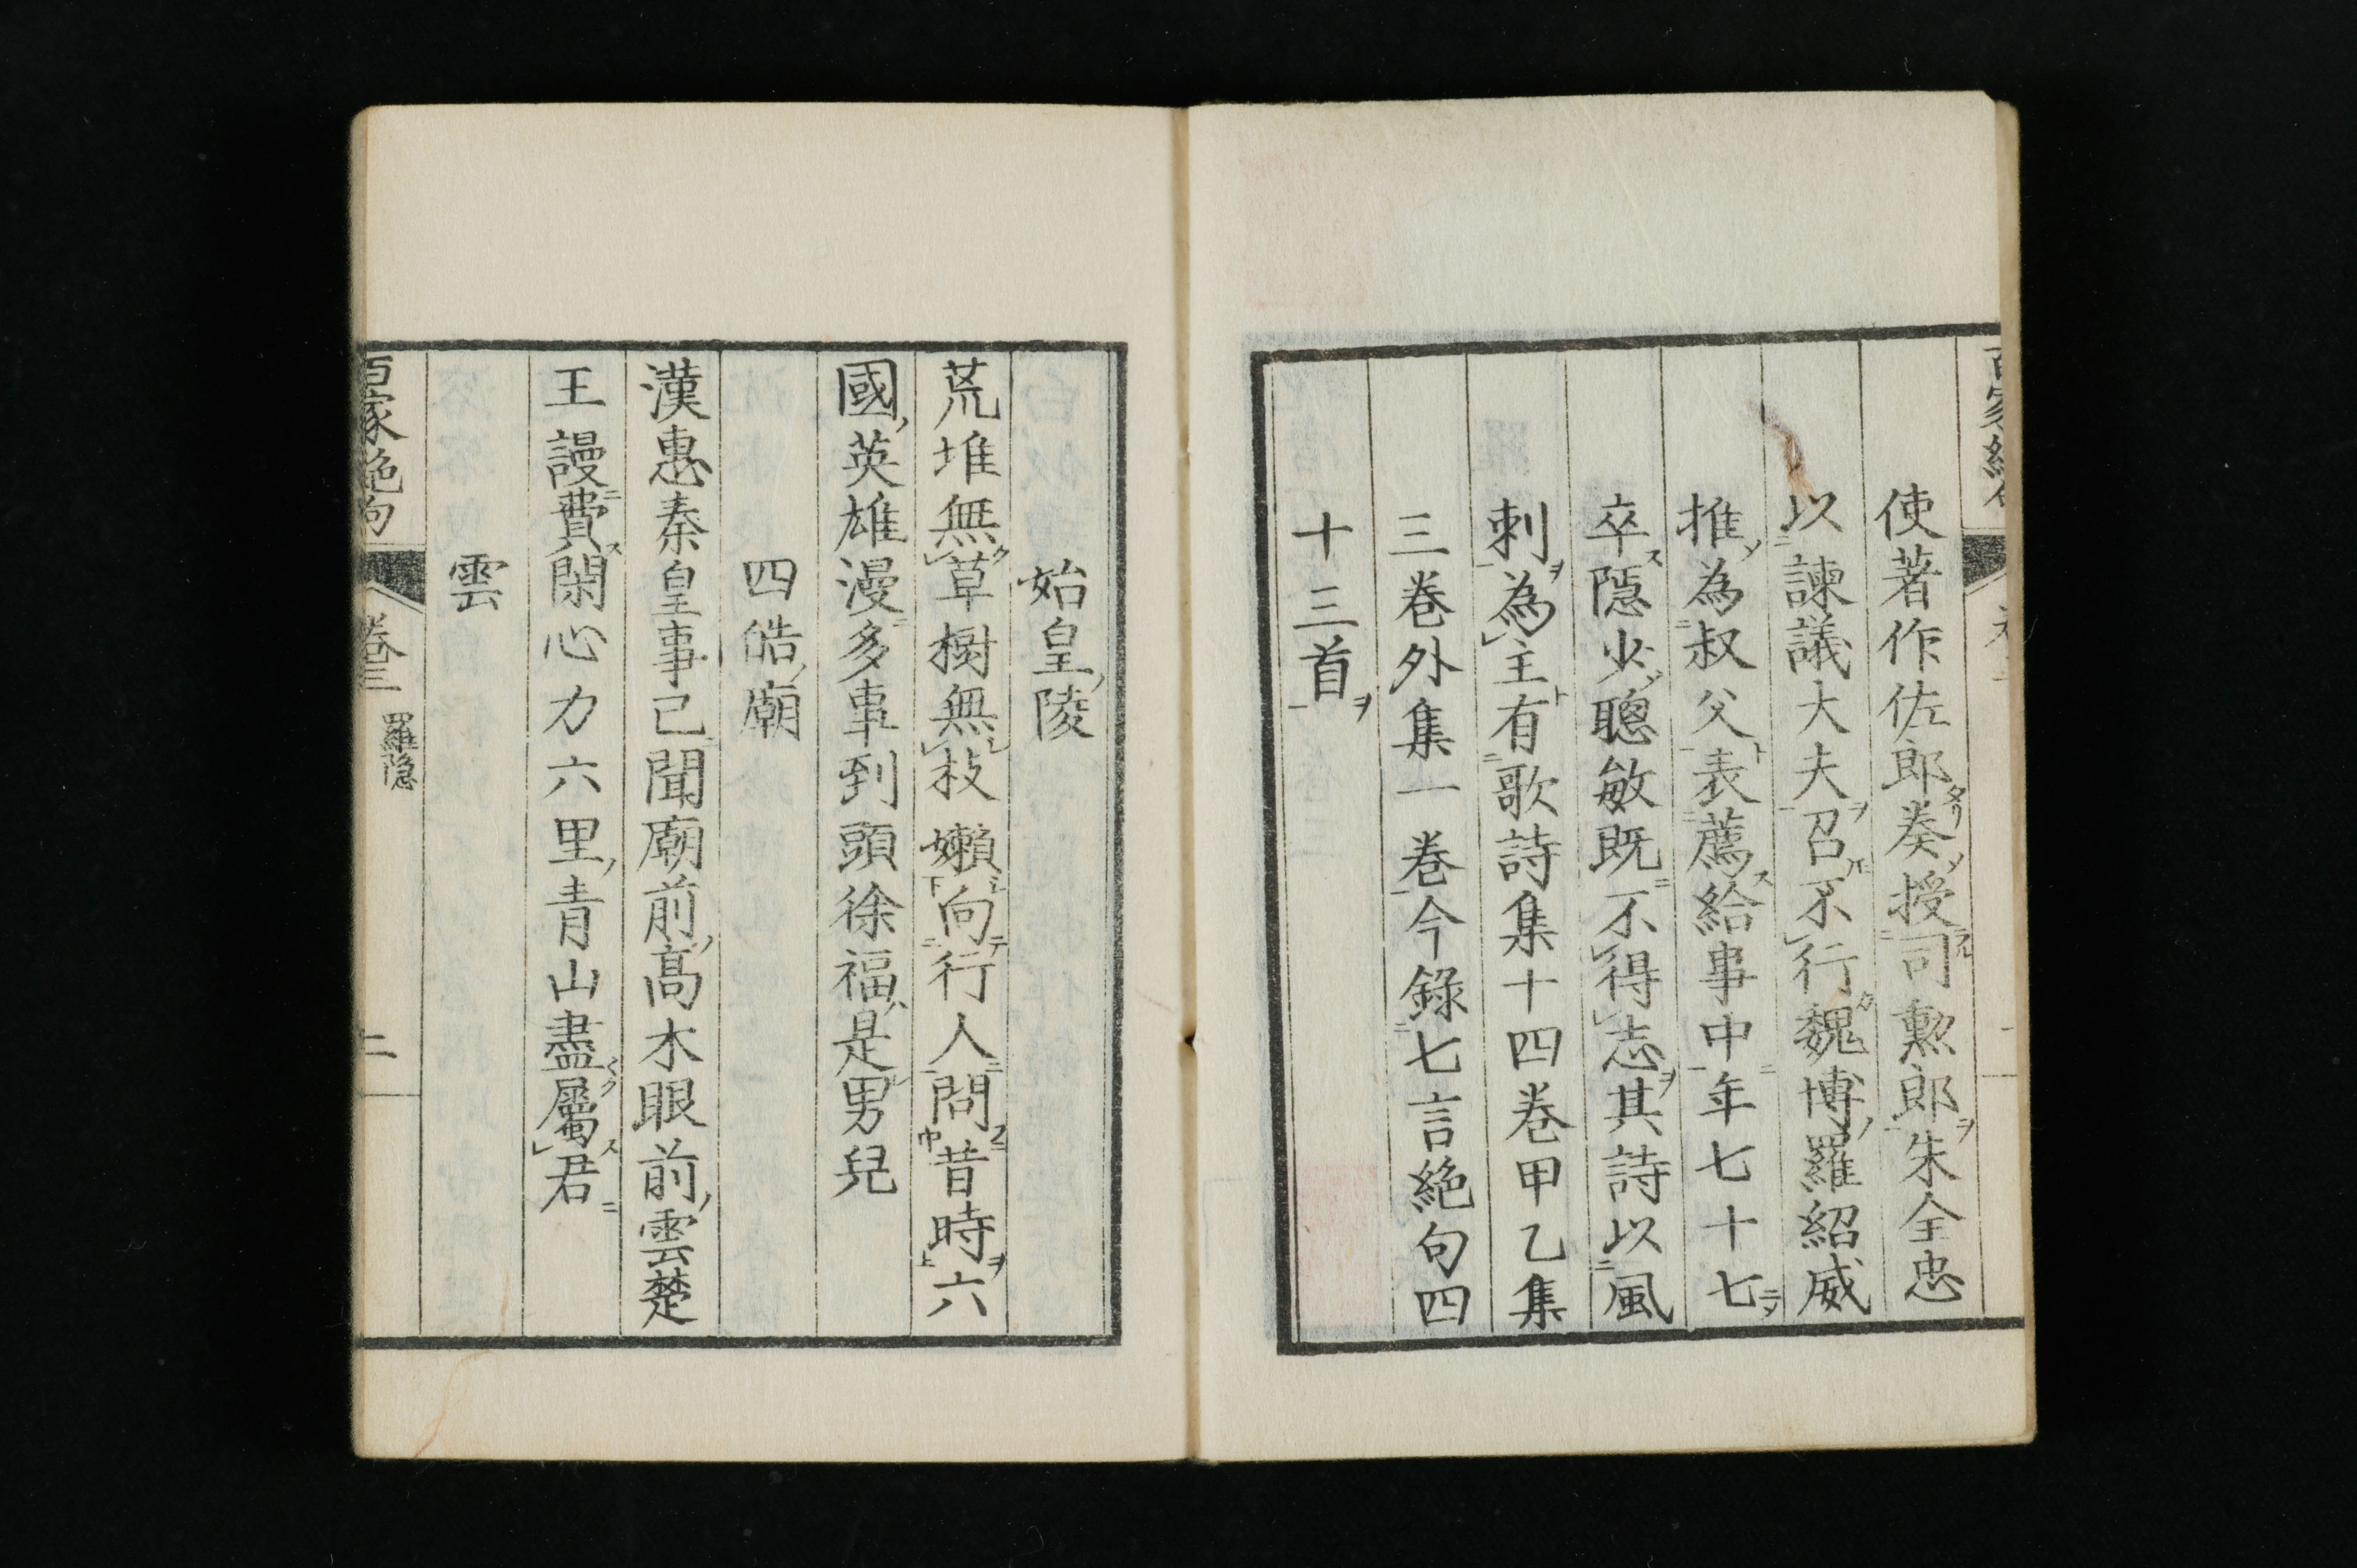 使著作佐郎奏授司勲郎朱全忠
以諫議大夫召不行魏博羅紹威
推為叔父表薦給事中年七十七
卒隱少聰敏既不得志其詩以風
刺為主有歌詩集十四卷甲乙集
三卷外集一卷今錄七言絶句四
十三首
始皇陵
荒堆無草樹無枝嬾向行人問昔時六
國英雄漫多事到頭徐福是男兒
四皓廟
漢惠秦皇事己聞廟前高木眼前雲楚
王謾費閑心力六里青山盡屬君
雲
百家絶句 卷三 羅隐 二